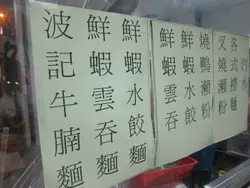 波記牛腩麵
鮮蝦雲吞麵
鮮蝦水餃麵
鮮蝦雲吞
鮮蝦水餃
燒鴨瀨粉
叉燒瀨粉
各式撈麵
汽水